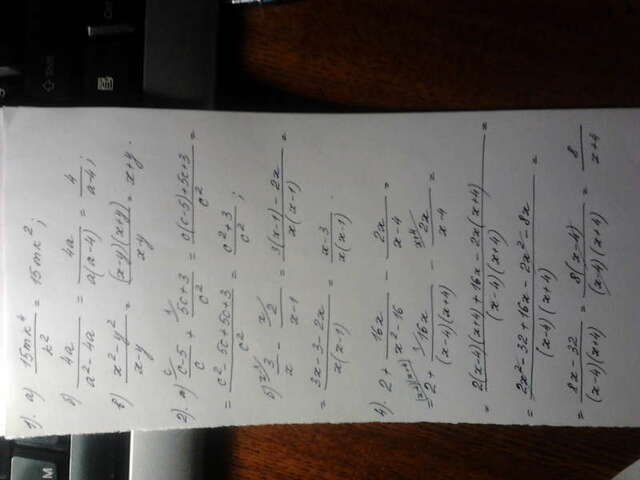 1). а) 15mk⁴/k² = 15mk²;
б) 4a/(a² - 4a) = 4a/(a(a-4)) = 4/(a-4);
в) (x² - y²)/(x-y) = (x-y)(x+y)/(x-y) = x+y.
2). а) (c-5)/c + (5c+3)/c² = (c(c-5)+5c+3)/c² =
= (c² - 5c + 5c + 3)/c² = (c² + 3)/c²;
б) 3/x - 2/(x-1) = (3(x-1) - 2x)/(x(x-1)) =
= (3x - 3 - 2x)/(x(x-1)) = (x-3)/(x(x-1)).
4). 2 + 16x/(x² - 16) - 2x/(x-4) =
= 2 + 16x/((x-4)(x+4)) - 2x/(x-4) =
= (2(x-4)(x+4) + 16x - 2x(x+4))/((x-4)(x+4)) =
= (2x² - 32 + 16x - 2x² - 8x)/((x-4)(x+4)) =
= (8x - 32)/((x-4)(x+4)) = 8(x-4)/((x-4)(x+4)) = 8/(x+4)